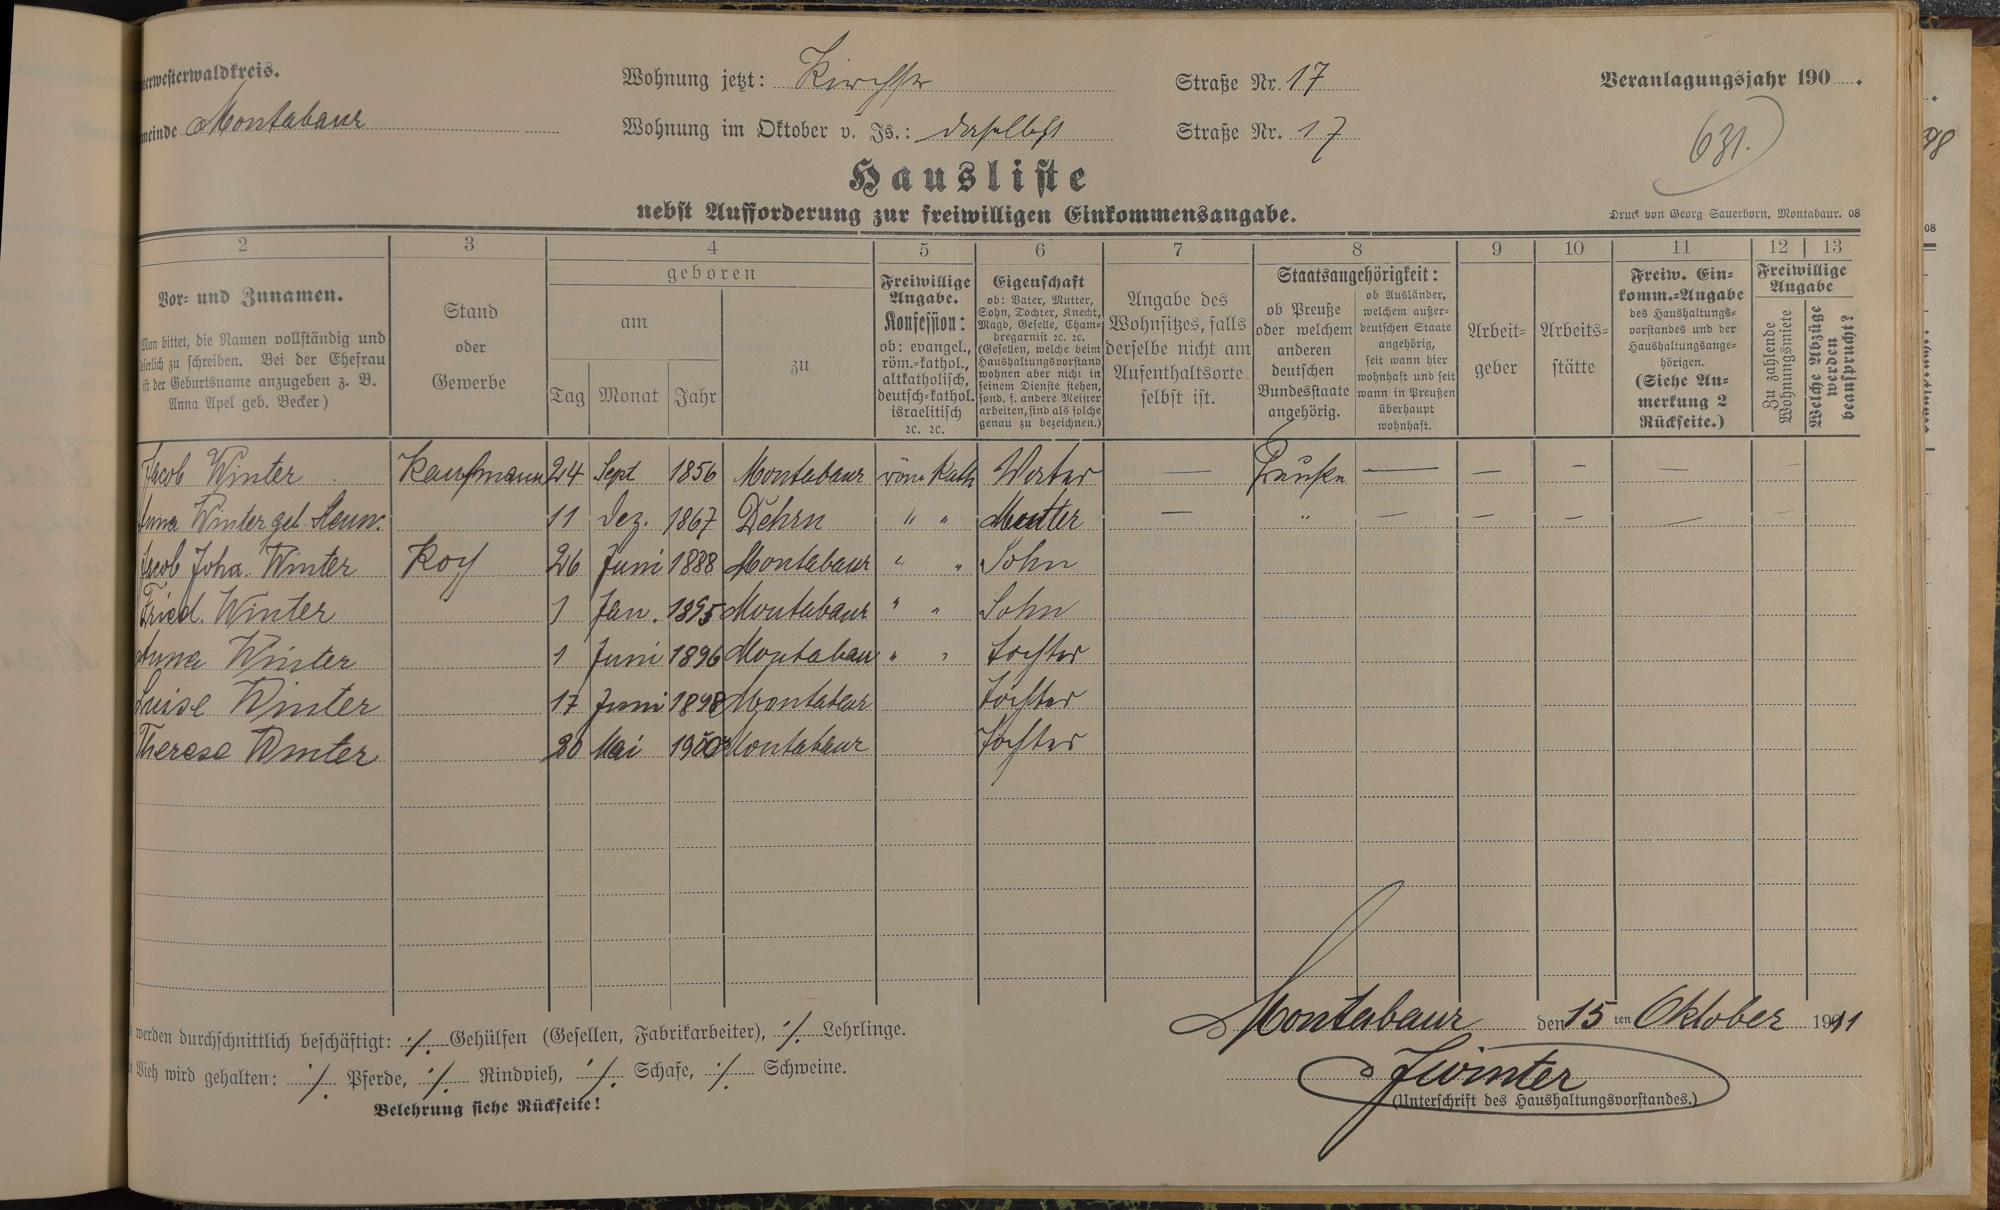 terwesterwaldkreis.
meinde Montabaur
Wohnung jetzt: Kirchstr Straße Nr. 17
Wohnung im Oktober v. Js.: daselbst Straße Nr. 17
Veranlagungsjahr 190 .
631.
Hausliste
nebst Aufforderung zur freiwilligen Einkommensangabe.
Druck von Georg Sauerborn, Montabaur. 08
2 3 4 5 6 7 8 9 10 11 12 13
Vor- und Zunamen.
Man bittet, die Namen vollständig und
leserlich zu schreiben. Bei der Ehefrau
ist der Geburtsname anzugeben z. B.
Anna Apel geb. Becker)
Stand
oder
Gewerbe
geboren
am
Tag Monat Jahr
zu
Freiwillige
Angabe.
Konfession:
ob: evangel.,
röm.-kathol.,
altkatholisch,
deutsch-kathol.
israelitisch
2c. 2c.
Eigenschaft
ob: Vater, Mutter,
Sohn, Tochter, Knecht,
Magd, Geselle, Cham-
bregarnist 2c. 2c.
(Gesellen, welche beim
Haushaltungsvorstand
wohnen aber nicht in
seinem Dienste stehen,
sond. f. andere Meister
arbeiten, sind als solche
genau zu bezeichnen.)
Angabe des
Wohnsitzes, falls
derselbe nicht am
Aufenthaltsorte
selbst ist.
Staatsangehörigkeit:
ob Preuße
oder welchem
anderen
deutschen
Bundesstaate
angehörig.
ob Ausländer,
welchem außer-
deutschen Staate
angehörig,
seit wann hier
wohnhaft und seit
wann in Preußen
überhaupt
wohnhaft.
Arbeit-
geber
Arbeits-
stätte
Freiw. Ein-
komm.-Angabe
des Haushaltungs-
vorstandes und der
Haushaltungsange-
hörigen.
(Siehe An-
merkung 2
Rückseite.)
Freiwillige
Angabe
Zu zahlende
Wohnungsmiete
Welche Abzüge
werden
beansprucht?
Jacob Winter Kaufmann 24 Sept 1856 Montabaur röm Kath Vater — Preuße — — — — —
Anna Winter geb. 11 Dez. 1867 Dehrn " " Mutter — " — — — — —
Jacob Joha. Winter 26 Juni 1888 Montabaur " " Sohn
Fried. Winter 1 Jan. 1895 Montabaur " " Sohn
Anna Winter 1 Juni 1896 Montabaur " " Tochter
Luise Winter 17 Juni 1898 Montabaur Tochter
Therese Winter 20 Mai Montabaur Tochter
werden durchschnittlich beschäftigt: ·/. Gehülfen (Gesellen, Fabrikarbeiter), ·/. Lehrlinge.
Vieh wird gehalten: ·/. Pferde, ·/. Rindvieh, ·/. Schafe, ·/. Schweine.
Belehrung siehe Rückseite!
Montabaur den 15 ten Oktober 1911
JWinter
(Unterschrift des Haushaltungsvorstandes.)